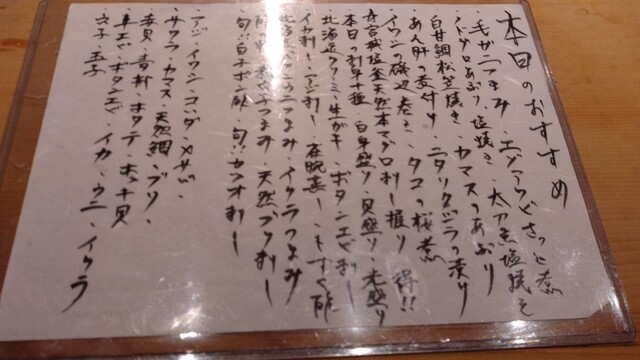 本日のおすすめ
・毛ガニつまみ・エゾアワビさっと煮
・ノドグロあぶり、塩焼き・太刀魚塩焼き
・白甘鯛松笠焼き・カマスのあぶり
・あん肝の煮付け・ニタリクジラの漬け
・イワシの磯辺巻き・タコの桜煮
宮城塩釜天然本マグロ刺し、握り 得!!
本日の刺身十種・白身盛り・貝盛り・光盛り
北海道 生がき・ボタンエビ刺し
イカ刺し・アジ刺し・茶碗蒸し・もずく酢
北海道 つまみ・イクラつまみ
つまみ・天然ブリ刺し
旬!!白子ポン酢・旬!!カツオ刺し
・アジ・イワシ・コハダ・メサバ・
・サワラ・カマス・天然鯛・ブリ・
・赤貝・青柳・ホタテ・本ミル貝
・車エビ・ボタンエビ・イカ・ウニ・イクラ
・穴子・玉子